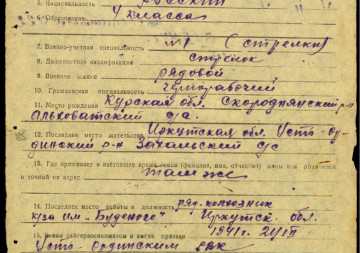 5. Национальность русский
6. Образование 4 класса
7. Военно-учетная специальность №1 (стрелки)
8. Должностная квалификация стрелок
9. Военное звание рядовой
10. Гражданская специальность чернорабочий
11. Место рождения Курская обл. Скороднянский р-н
Ольховатский с/с.
12. Последнее место жительства Иркутская обл. Усть-ор-
динский р-н Захальский с/с
13. Где проживает в настоящее время семья (фамилия, имя, отчество) жены или родителей
и точный их адрес там же
14. Последнее место работы и должность ряд. колхозник
к/за им. Буденого Иркутск. обл.
15. Каким райвоенкоматом и когда призван 1941 г. 24/VII
Усть-Ордитским РВК